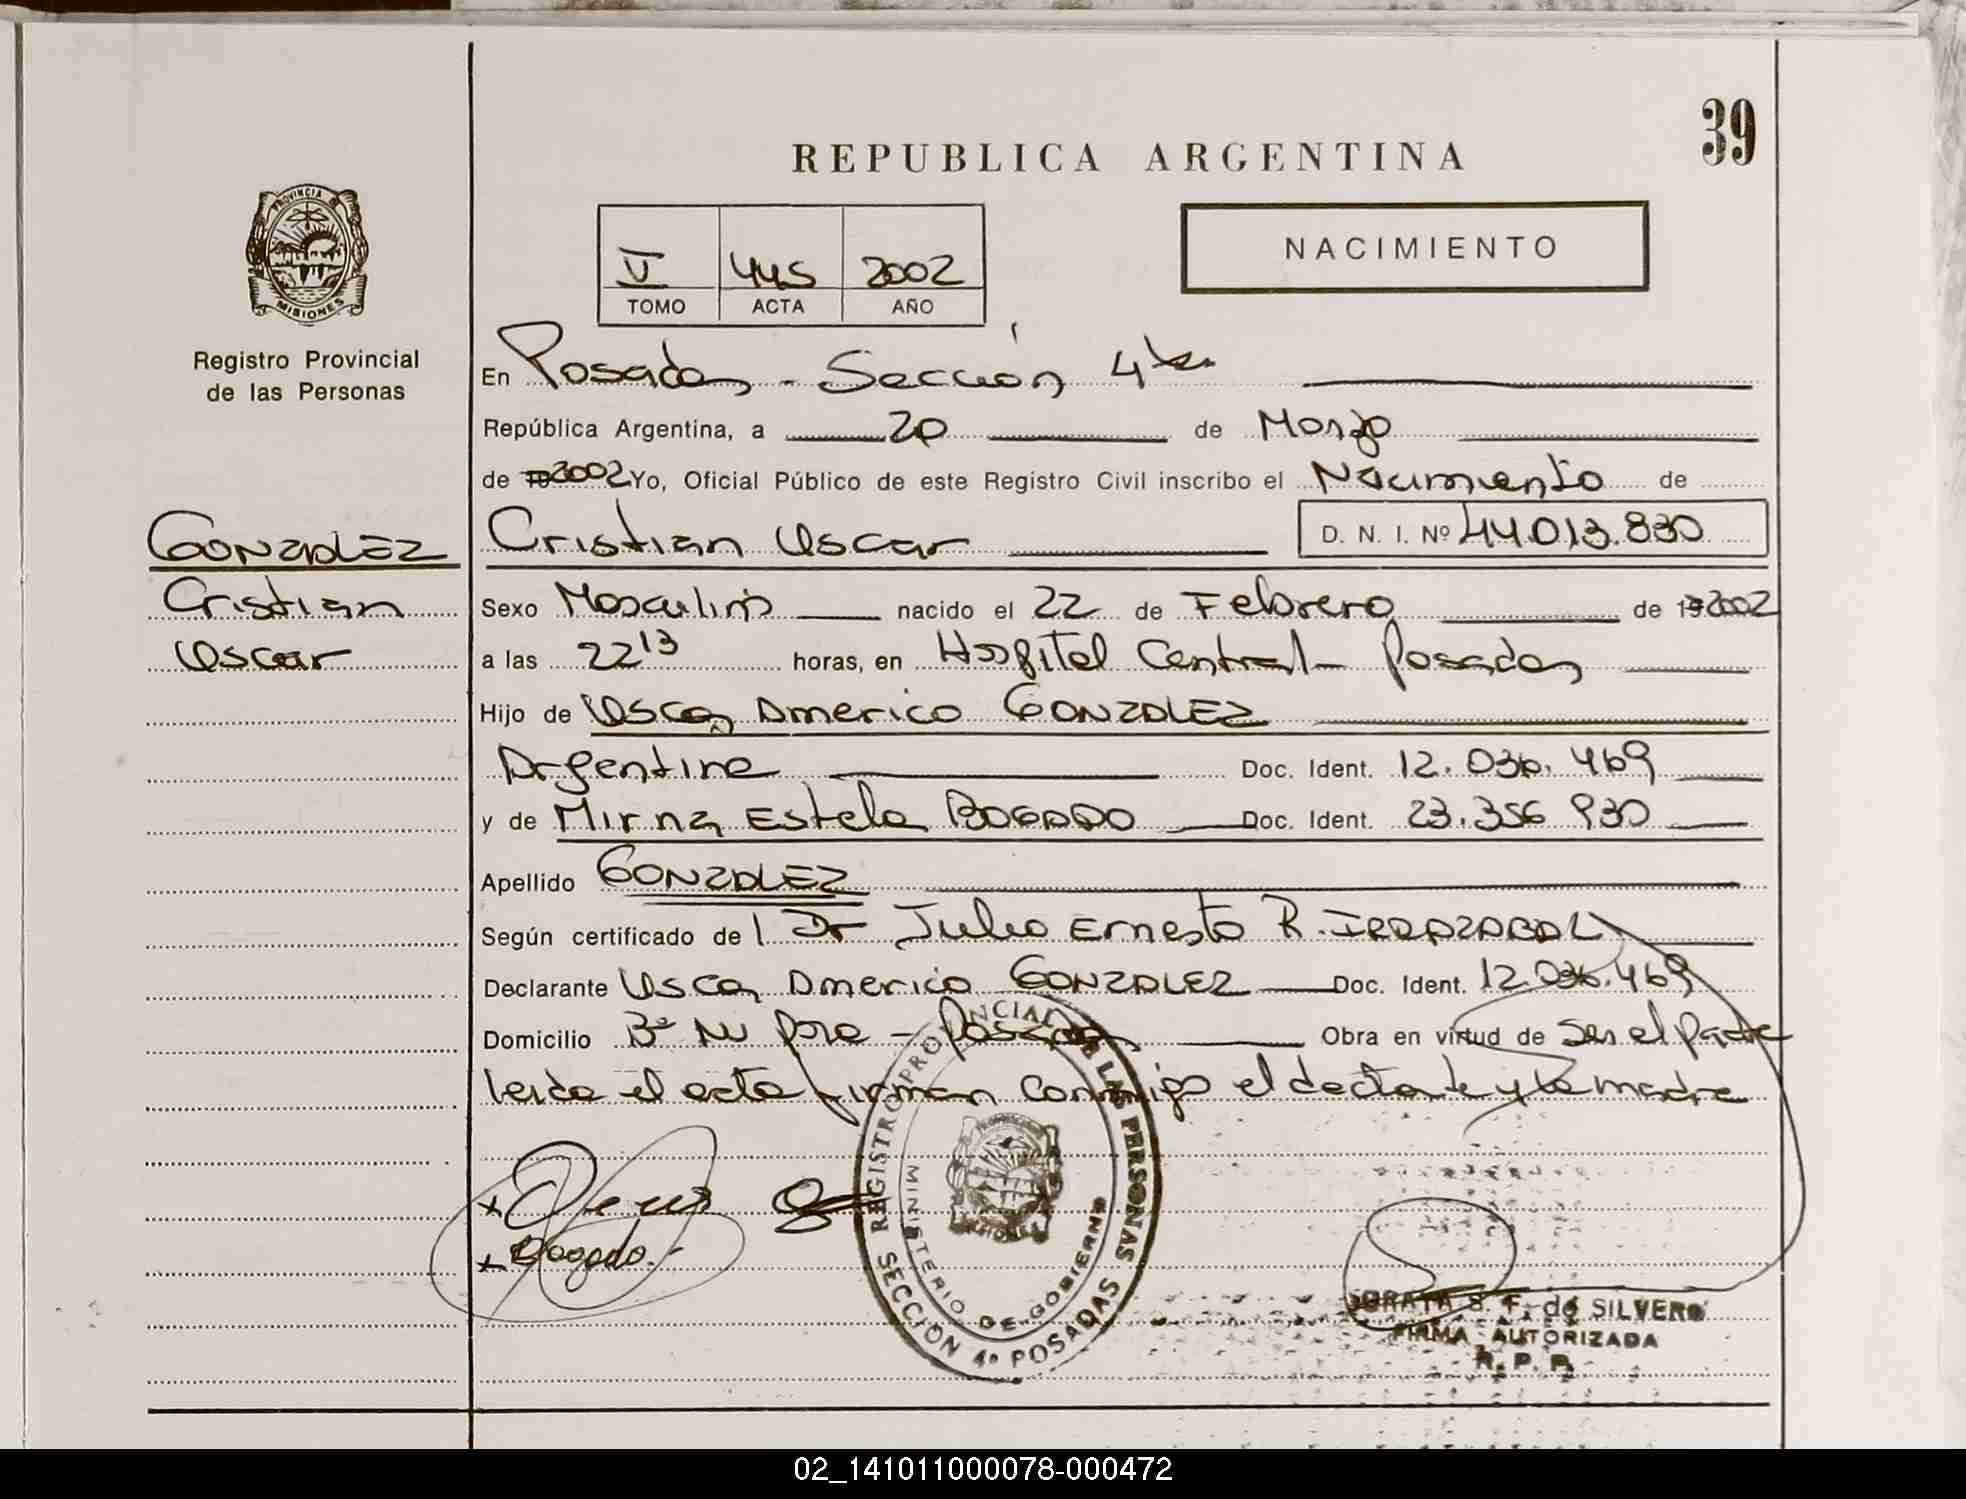 39
REPUBLICA ARGENTINA
PROVINCIA DE
MISIONES
Registro Provincial
de las Personas
V 445 2002
TOMO ACTA AÑO
NACIMIENTO
En Posadas - Sección 4ta
República Argentina, a 20 de Marzo
de 2002 Yo, Oficial Público de este Registro Civil inscribo el Nacimiento de
GONZALEZ
Cristian Oscar D. N. I. Nº 44.013.830
Cristian
Oscar
Sexo Masculino nacido el 22 de Febrero de 2002
a las 22 13 horas, en Hospital Central - Posadas
Hijo de Oscar Americo GONZALEZ
Argentina Doc. Ident. 12.036.469
y de Mirna Estela BOGADO Doc. Ident. 23.356 930
Apellido GONZALEZ
Según certificado de l Dr Julio Ernesto R. IRRAZABAL
Declarante Oscar Americo GONZALEZ Doc. Ident. 12.036.469
Domicilio Bº - Posadas Obra en virtud de Ser el padre
leida el acta firman conmigo el declarante y la madre
Bogado.-
REGISTRO PROVINCIAL DE LAS PERSONAS
MINISTERIO DE GOBIERNO
SECCIÓN 4ª POSADAS
S. F. de SILVERO
FIRMA AUTORIZADA
R. P. P.
02_141011000078-000472